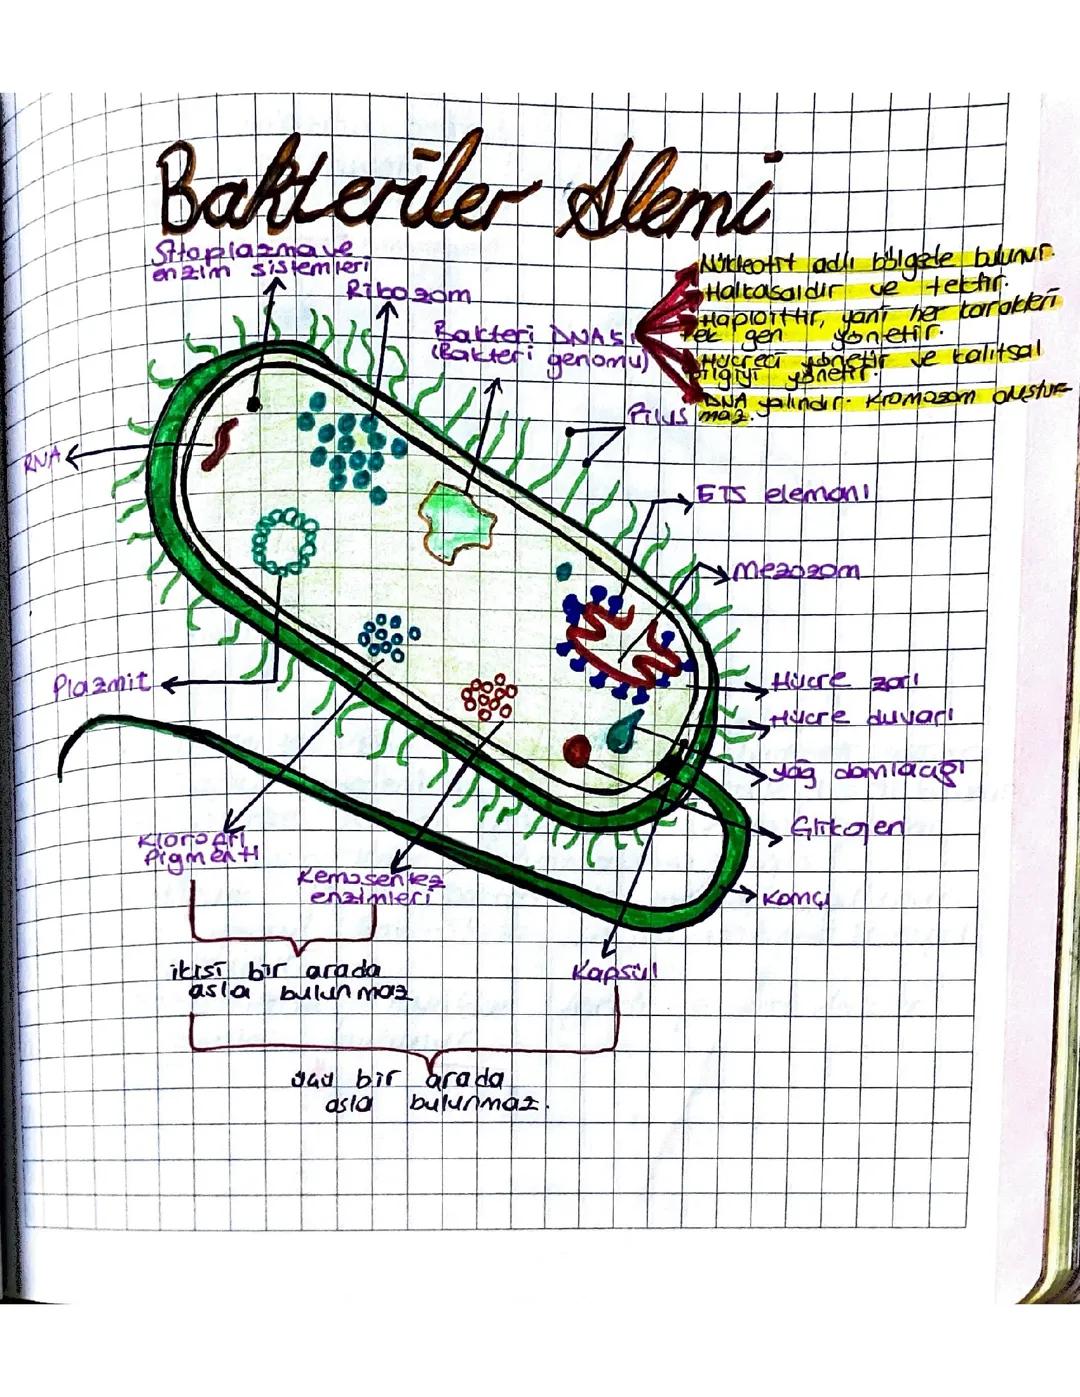 Bakteriler Alemi
Sitoplazma ve
enzim sistemleri
Ribozom
Bakteri DNAsı
(Bakteri genomu)
Nükleotit adlı bölgede bulunur.
Halkasaldır ve tektir.
Haploittir, yani her karakteri
tek gen yönetir.
Hücreyi yönetir ve kalıtsal
yönetir.
DNA yalındır. Kromozom oluştur-
maz.
Pilus
RNA
ETS elemanı
Mezozom
Plazmit
Hücre zarı
Hücre duvarı
yağ damlacığı
Glikojen
Kamçı
Klorofil
Pigmenti
Kemosentez
enzimleri
Kapsül
ikisi bir arada
asla bulunmaz
üçü bir arada
asla bulunmaz.